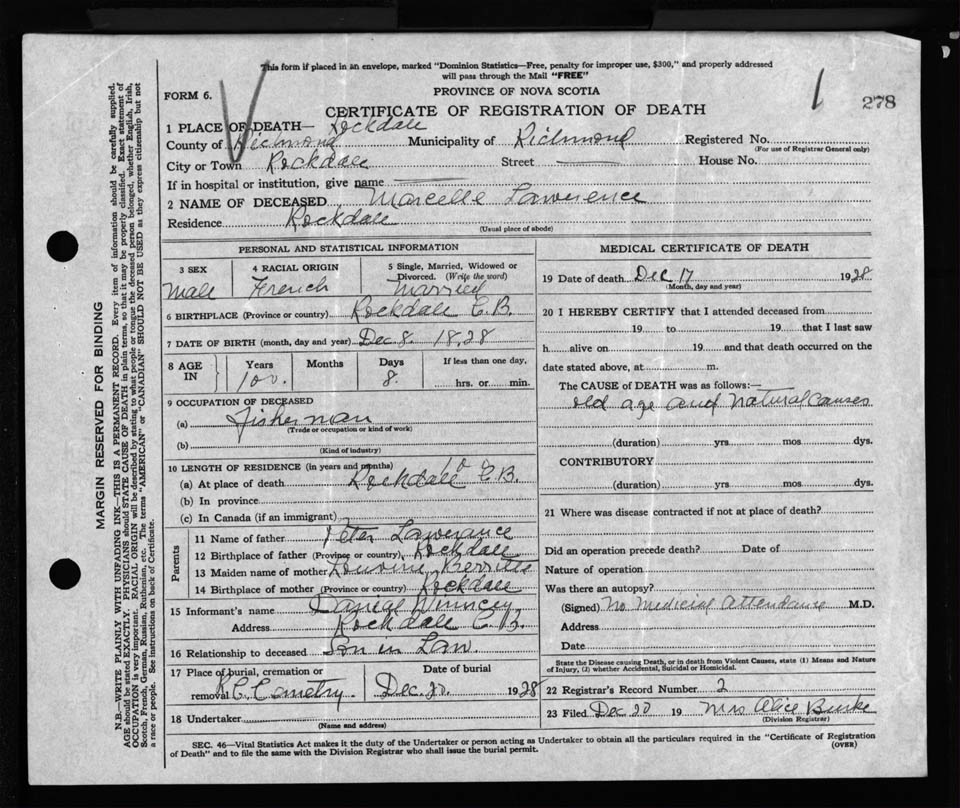 This form if placed in an envelope, marked "Dominion Statistics—Free, penalty for improper use, $300," and properly addressed
will pass through the Mail "FREE"
FORM 6.
PROVINCE OF NOVA SCOTIA
1 278
CERTIFICATE OF REGISTRATION OF DEATH
1 PLACE OF DEATH— Rockdale
County of Richmond Municipality of Richmond Registered No.
(For use of Registrar General only)
City or Town Rockdale Street House No.
If in hospital or institution, give name
2 NAME OF DECEASED Marcelle Lawerence
Residence Rockdale
(Usual place of abode)
PERSONAL AND STATISTICAL INFORMATION
3 SEX 4 RACIAL ORIGIN 5 Single, Married, Widowed or
Divorced. (Write the word)
Male French Married
6 BIRTHPLACE (Province or country) Rockdale C.B.
7 DATE OF BIRTH (month, day and year) Dec 8. 1828
8 AGE IN Years Months Days If less than one day,
100. 8. hrs. or min.
9 OCCUPATION OF DECEASED
(a) Fisherman
(Trade or occupation or kind of work)
(b)
(Kind of industry)
10 LENGTH OF RESIDENCE (in years and months)
(a) At place of death Rockdale C.B.
(b) In province
(c) In Canada (if an immigrant)
Parents
11 Name of father Peter Lawerance
12 Birthplace of father (Province or country) Rockdale
13 Maiden name of mother
14 Birthplace of mother (Province or country) Rockdale
15 Informant's name
Address Rockdale C.B.
16 Relationship to deceased Son in Law.
17 Place of burial, cremation or Date of burial
removal R.C. Cemetry Dec. 20. 1928
18 Undertaker
(Name and address)
MEDICAL CERTIFICATE OF DEATH
19 Date of death Dec 17 1928
(Month, day and year)
20 I HEREBY CERTIFY that I attended deceased from
19 to 19 that I last saw
h alive on 19 and that death occurred on the
date stated above, at m.
The CAUSE of DEATH was as follows:—
old age and Natural causes
(duration) yrs. mos dys.
CONTRIBUTORY
(duration) yrs mos dys.
21 Where was disease contracted if not at place of death?
Did an operation precede death? Date of
Nature of operation
Was there an autopsy?
(Signed) No Medicial Attendance M.D.
Address
Date
State the Disease causing Death, or in death from Violent Causes, state (1) Means and Nature
of Injury, (2) whether Accidental, Suicidal or Homicidal.
22 Registrar's Record Number 2
23 Filed Dec 20 19 Mrs Alice Burke
(Division Registrar)
SEC. 46—Vital Statistics Act makes it the duty of the Undertaker or person acting as Undertaker to obtain all the particulars required in the "Certificate of Registration
of Death" and to file the same with the Division Registrar who shall issue the burial permit.
(OVER)
MARGIN RESERVED FOR BINDING
N.B.—WRITE PLAINLY WITH UNFADING INK—THIS IS A PERMANENT RECORD. Every item of information should be carefully supplied.
AGE should be stated EXACTLY. PHYSICIANS should STATE CAUSE OF DEATH in plain terms, so that it may be properly classified. Exact statement of
OCCUPATION is very important. RACIAL ORIGIN will be described by stating to what people or tongue the deceased person belonged, whether English, Irish,
Scotch, French, German, Russian, Ruthenian, etc. The terms "AMERICAN" or "CANADIAN" SHOULD NOT BE USED as they express citizenship but not
a race or people. See instructions on back of Certificate.